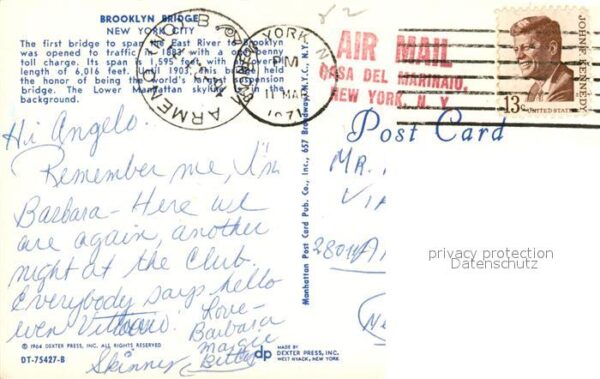 BROOKLYN BRIDGE
NEW YORK CITY
The first bridge to span the East River to Brooklyn
was opened to traffic in 1883 with a one-penny
toll charge. Its span is 1,595 feet with a cover
length of 6,016 feet. Until 1903, this bridge held
the honor of being the world's longest suspension
bridge. The Lower Manhattan skyline is in the
background.
YORK, N
PM
11 MAR
1971
ARMENO
AIR MAIL
CASA DEL MARINAIO,
NEW YORK, N. Y.
JOHN F. KENNEDY
13c UNITED STATES
Post Card
Hi Angelo.
Remember me, I'm
Barbara - Here we
are again, another
night at the Club.
Everybody says hello
even Vittorio!
Love -
Barbara
Margie
Skinney
Manhattan Post Card Pub. Co., Inc., 657 Broadway, N.Y.C., N.Y.
MR.
VIA
28011 A
privacy protection
Datenschutz
© 1964 DEXTER PRESS, INC. ALL RIGHTS RESERVED
DT-75427-B
dp
MADE BY
DEXTER PRESS, INC.
WEST NYACK, NEW YORK